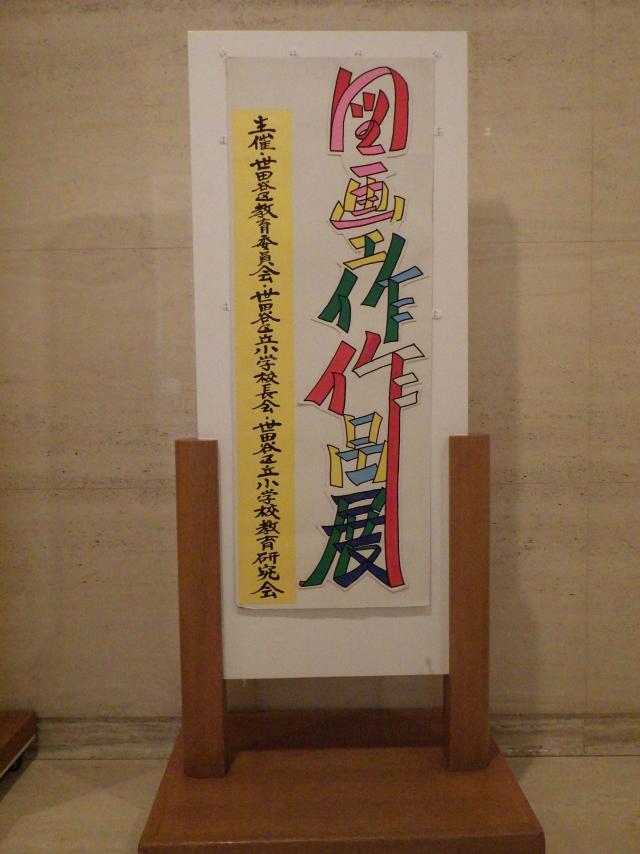 図画工作作品展
主催・世田谷区教育委員会・世田谷区立小学校長会・世田谷区立小学校教育研究会